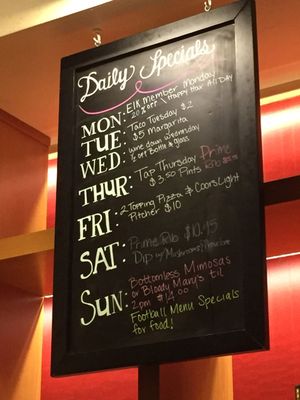 Daily Specials
MON: Elk Member Monday
20% off \ Happy Hour All Day
TUE: Taco Tuesday $2
$5 Margarita
WED: Wine down Wednesday
1/2 off Bottle & glass
THUR: Tap Thursday Prime
$3.50 Pints Rib
FRI: 2 Topping Pizza & Coors Light
Pitcher $10
SAT: Prime Rib $10.95
Dip w/ Mushrooms/
SUN: Bottomless Mimosas
or Bloody Mary's til
2pm $14.00
Football Menu Specials
for food!